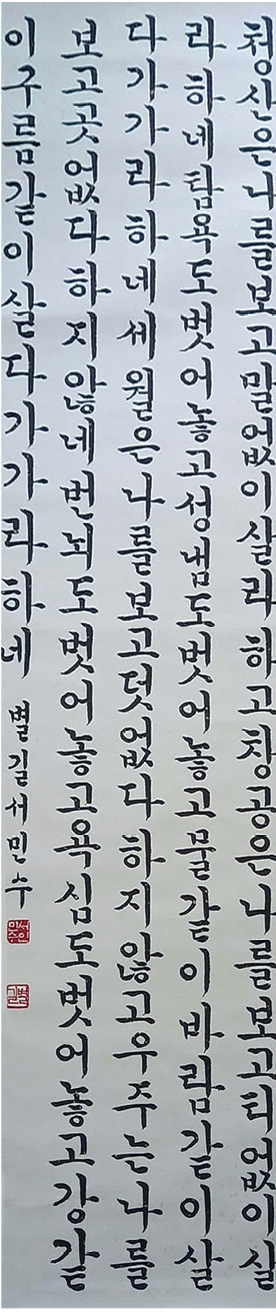 청산은나를보고말없이살라하고창공은나를보고티없이살
라하네탐욕도벗어놓고성냄도벗어놓고물같이바람같이살
다가가라하네세월은나를보고덧없다하지않고우주는나를
보고곳없다하지않네번뇌도벗어놓고욕심도벗어놓고강같
이구름같이살다가가라하네 별길서민수